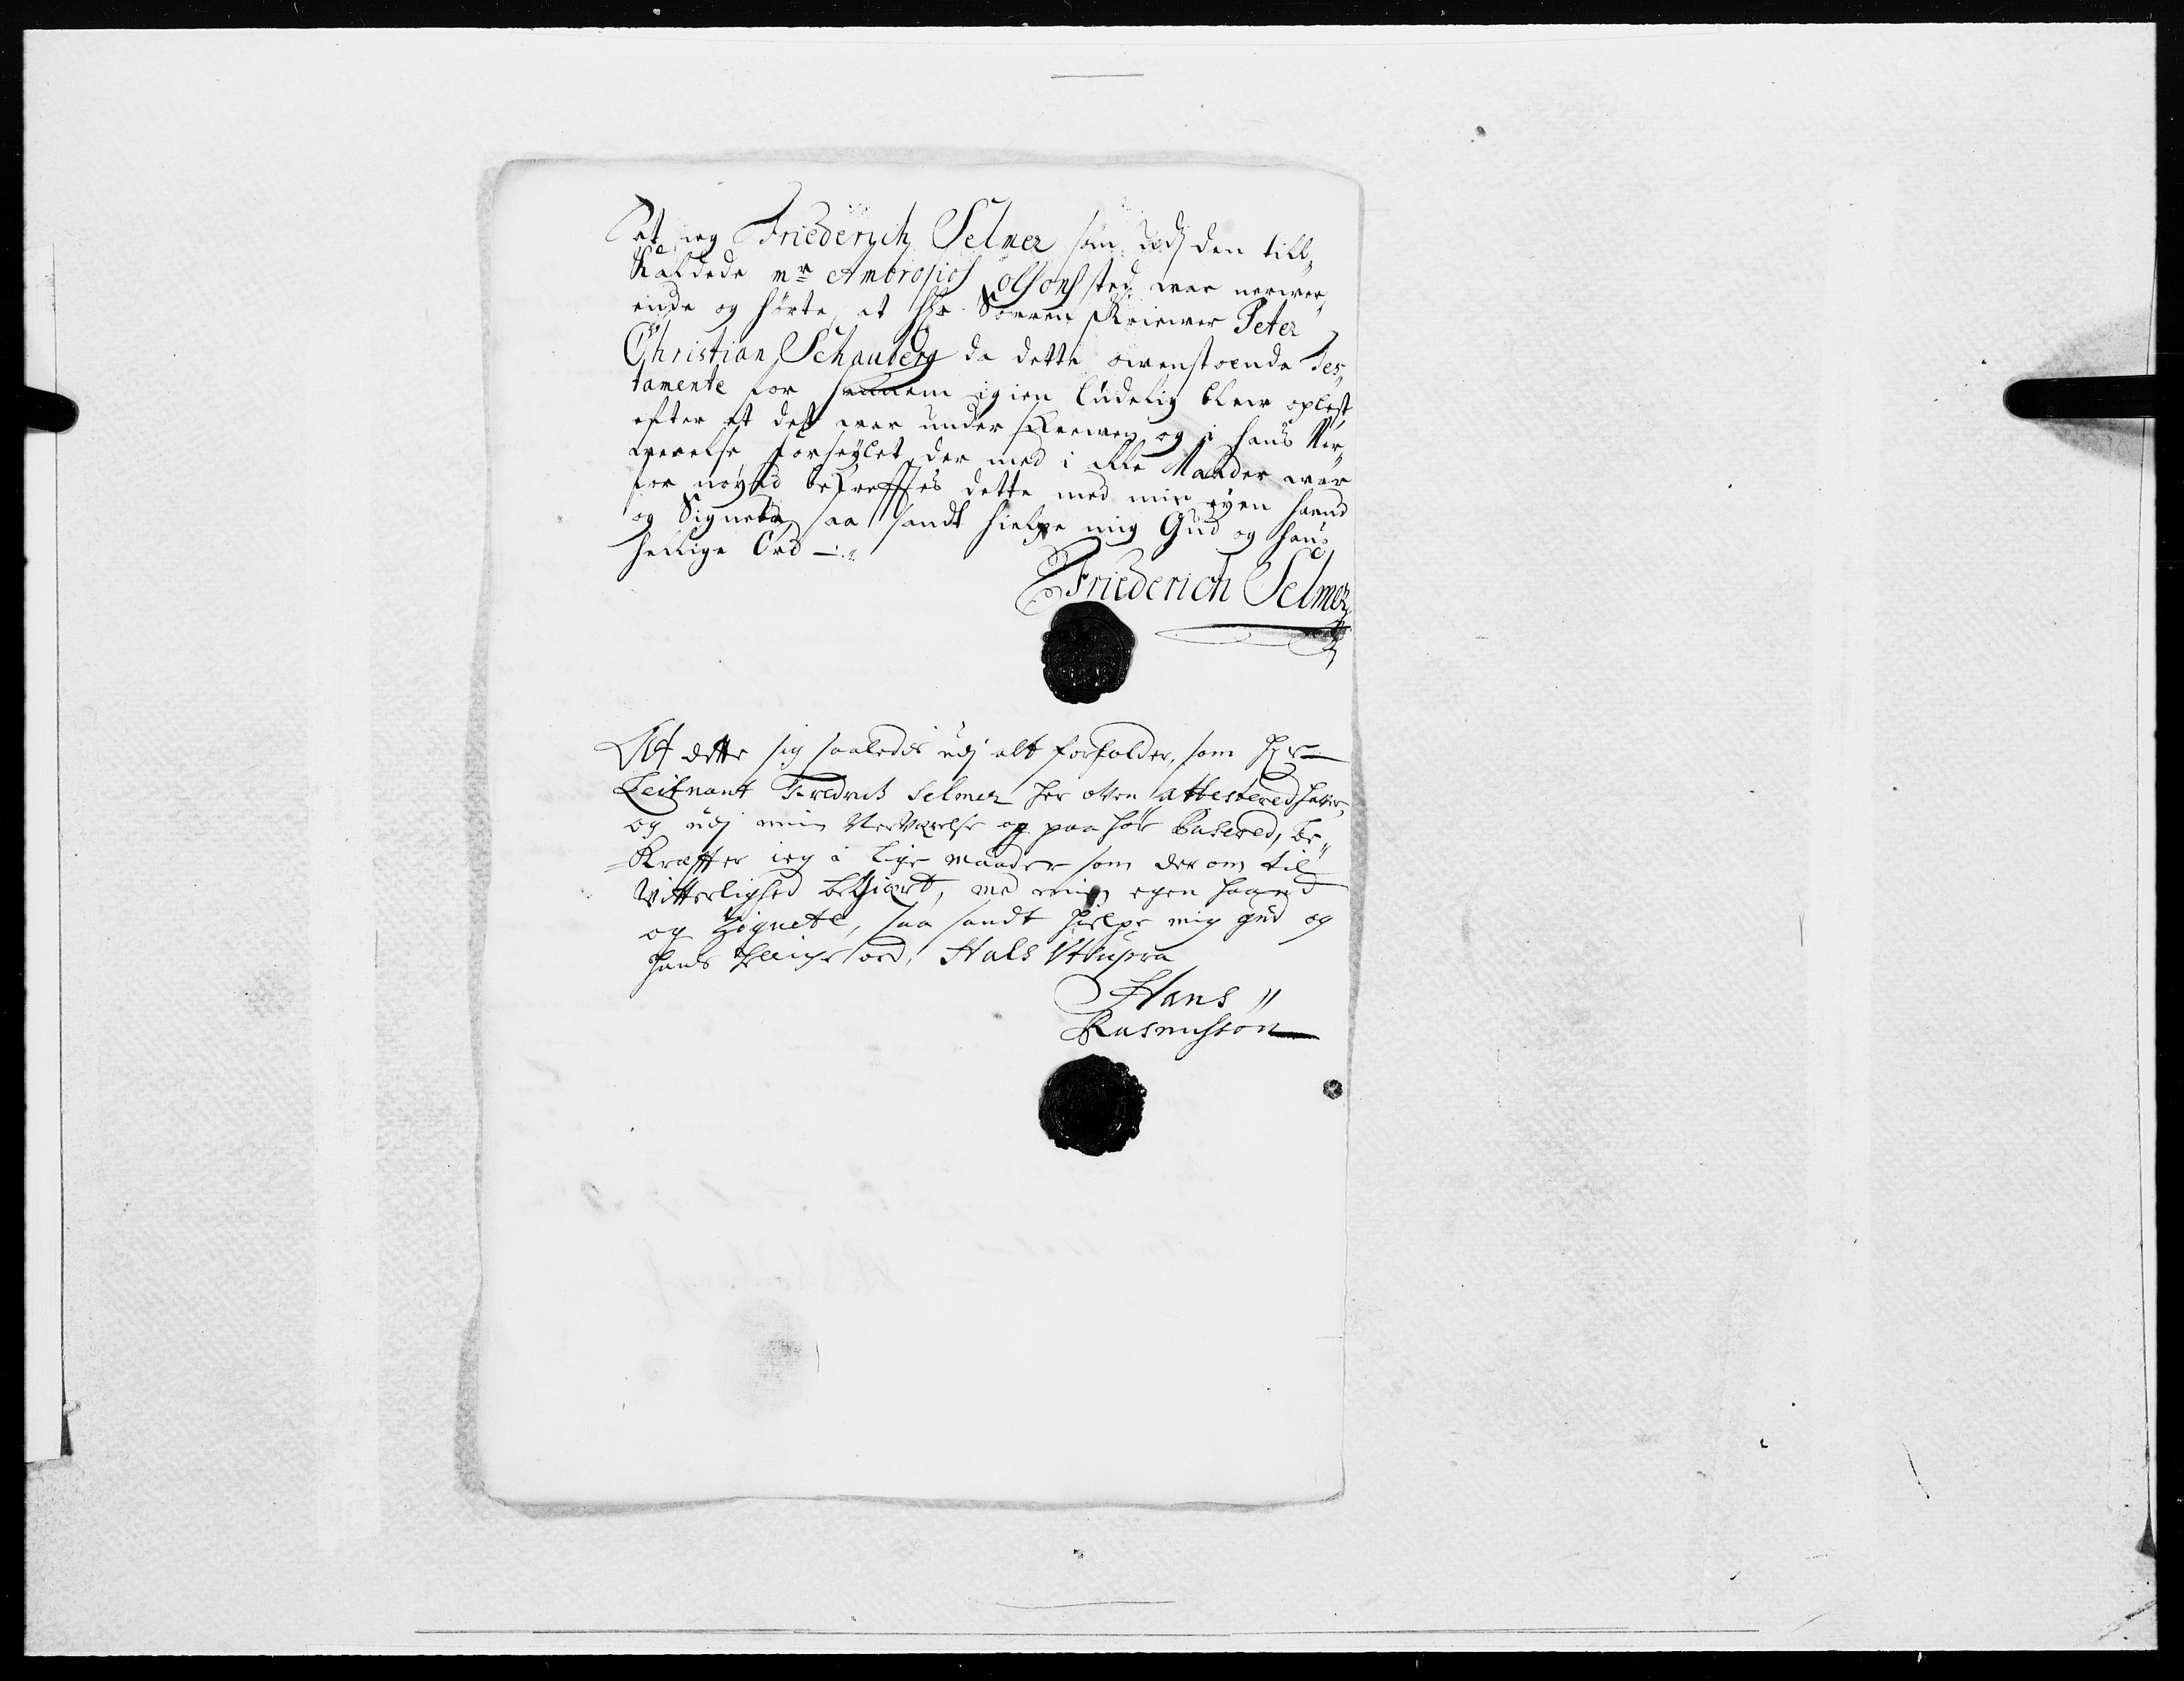 at ieg Friederich Selmer som udj den till„
kaldede mr Ambrosios olsons sted war nerwer„
ende og hörte, at Hr Sorren skriewer Peter
Christian Schauberg da dette owenstoende Tes„
tamente for hannem igien lüdelig blew oplest,
efter at det war ünder skrewen og i hans Ner„
werelse forseglet, der med i alle Maader war
for nöyed bekrefftes dette med min egen haand
og Signete, saa sandt hielpe mig Gud og hans
hellige Ord —:
Friederich Selmer
At dette sig saaledes udj alt forholder, som Hr
Leitnant Fredrich Selmer her oven attestered hafver,
og udj min Nerværelse og paahör Passered, be„
=kræffter ieg i lige maader som der om til
Vitterlighed begiert, med min egen haand
og Zignete, saa sandt hielpe mig gud og
hans hellige ord, Hals Ut supra
Hans „
Rasmusson